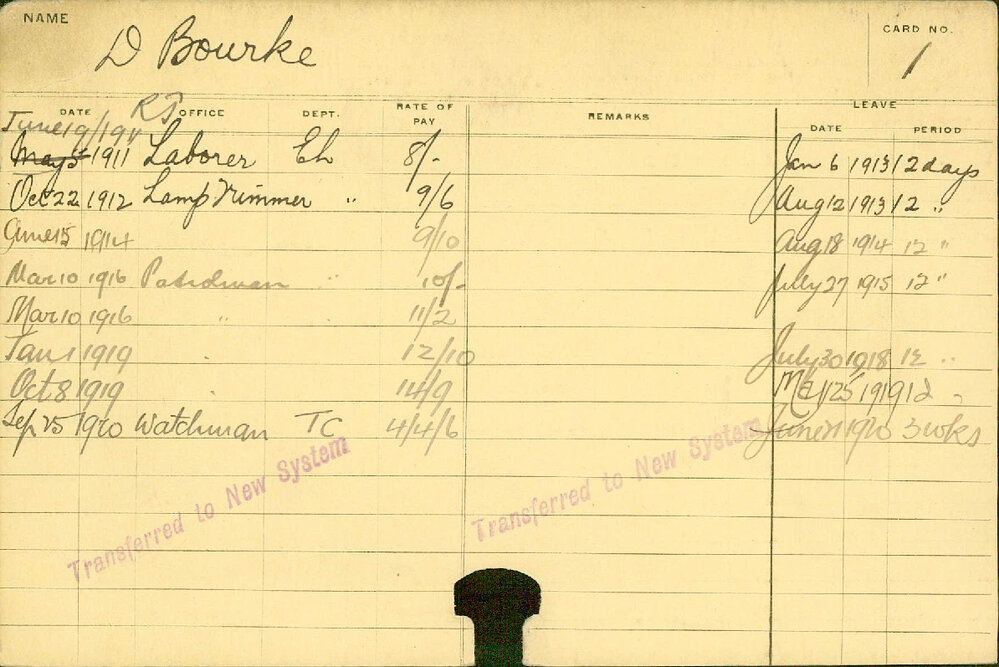 NAME
D Bourke
CARD NO.
1
DATE OFFICE DEPT. RATE OF PAY REMARKS LEAVE DATE PERIOD
June 19/1911 RJ
May 5 1911 Laborer Eh 8/- Jan 6 1913 12 days
Oct 22 1912 Lamp Trimmer " 9/6 Aug 12 1913 12 "
June 15 1914 9/10 Aug 18 1914 12 "
Mar 10 1916 Patrolman " 10/- July 27 1915 12 "
Mar 10 1916 " 11/2
Jan 1 1919 " 12/10 July 30 1918 12 "
Oct 8 1919 14/9 1919 12 "
Sep 25 1920 Watchman TC 4/4/6 June 1920 3 wks
Transferred to New System Transferred to New System